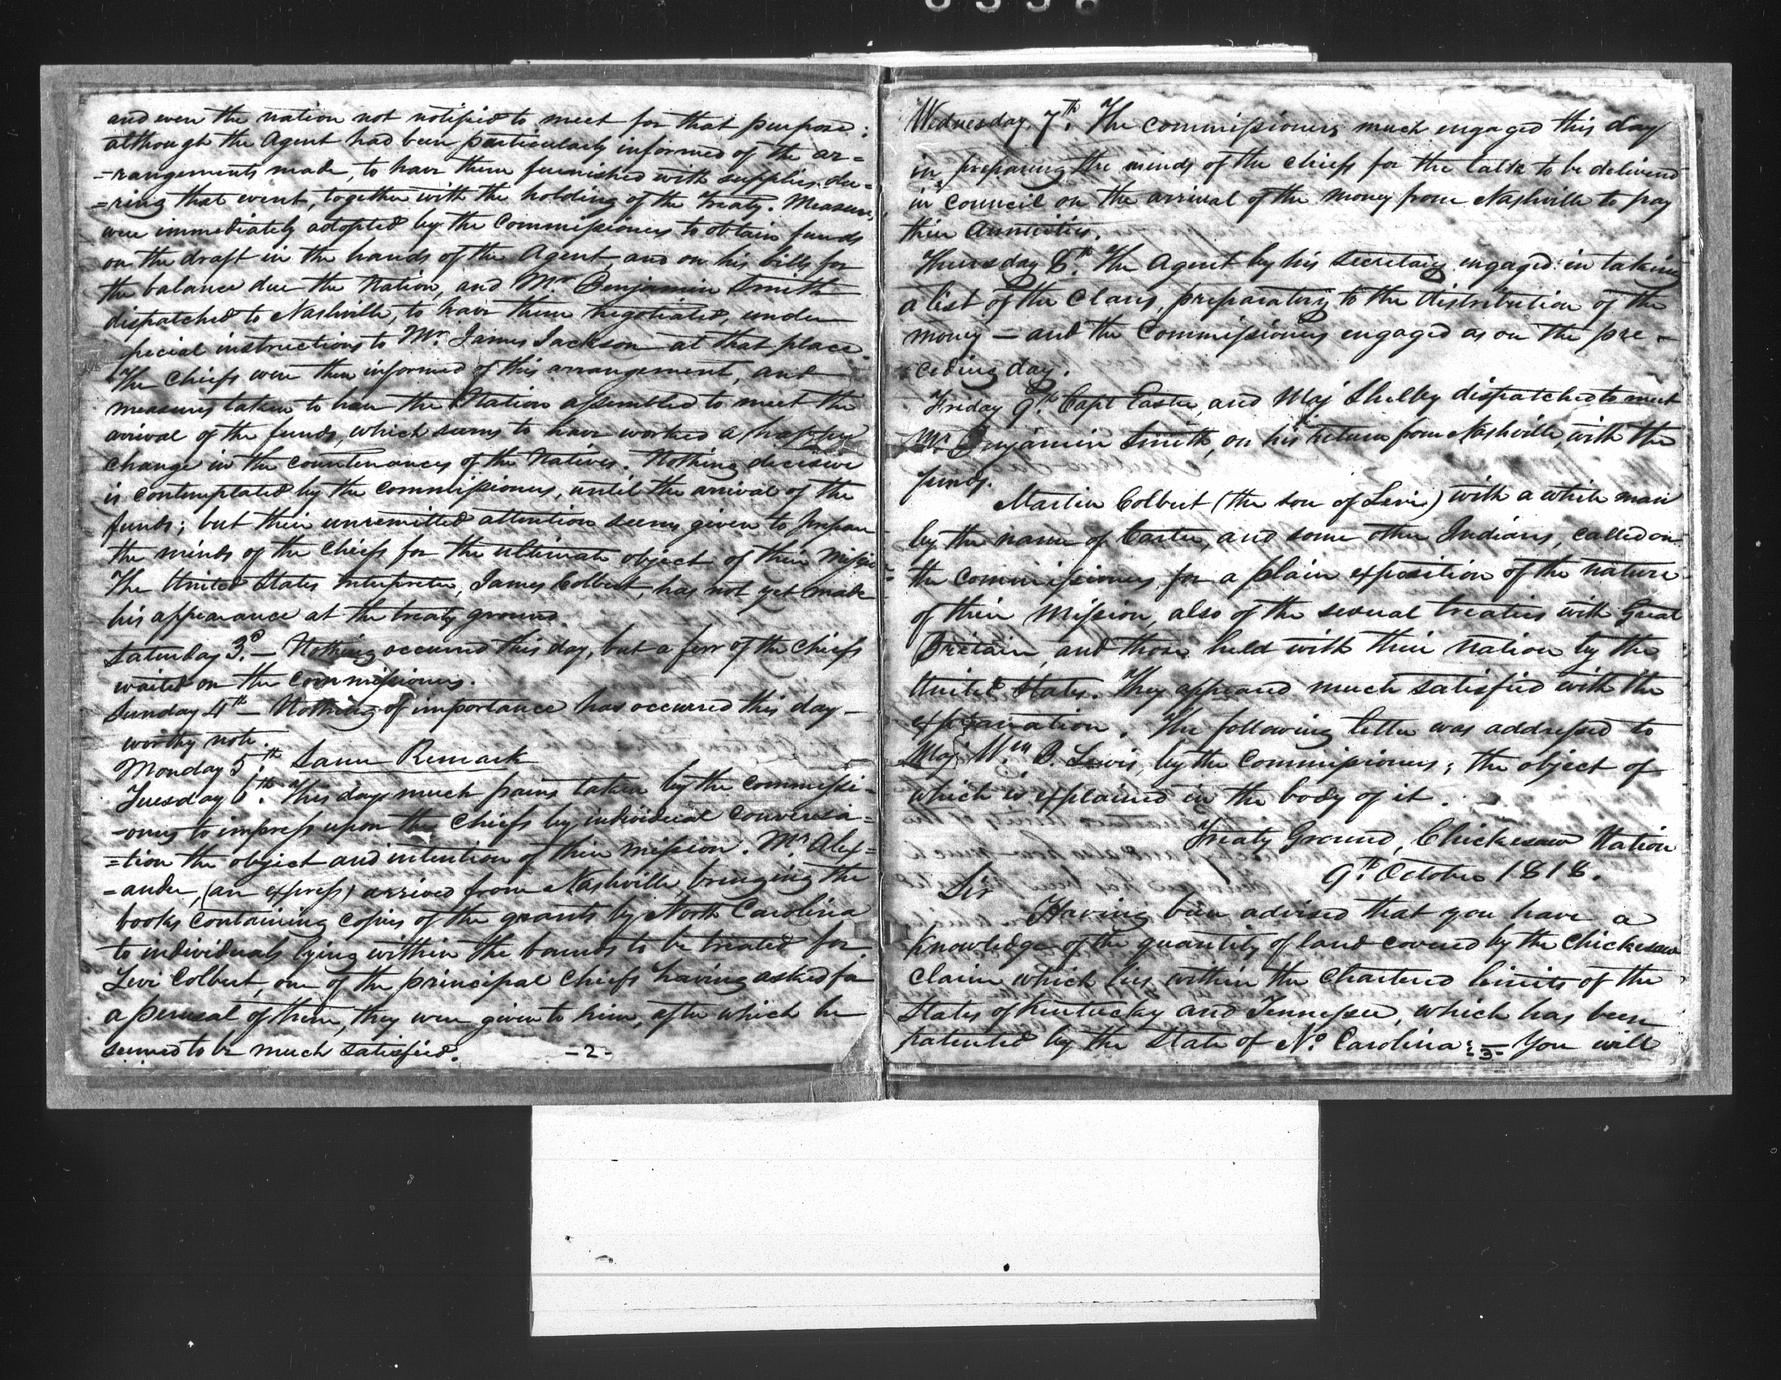 and even the nation not notified to meet for that purpose:
although the Agent had been particularly informed of the ar=
=rangements made, to have them furnished with supplies du=
=ring that event, together with the holding of the Treaty. Measures
were immediately adopted by the Commissioners to obtain funds
on the draft in the hands of the Agent, and on his bills for
the balance due the Nation, and Mr Benjamin Smith
dispatched to Nashville, to have them negotiated, under
special instructions to Mr. James Jackson at that place.
The Chiefs were then informed of this arrangement, and
measures taken to have the Nation assembled to meet the
arrival of the funds, which seems to have worked a happy
change in the countenances of the Natives. Nothing decisive
is contemplated by the commissioners, until the arrival of the
funds; but their unremitted attention seems given to prepare
the minds of the Chiefs for the ultimate object of their Missi
The United States Interpreter, James Colbert, has not yet made
his appearance at the treaty ground.
Saturday 3d. — Nothing occurred this day, but a few of the Chiefs
waited on the commissioners.
Sunday 4th — Nothing of importance has occurred this day —
worthy note.
Monday 5th. Same Remark
Tuesday 6th. This day much pains taken by the commissi-
-oners to impress upon the Chiefs by individual conversa=
=tion the object and intention of their mission. Mr Alex=
=ander, (an express) arrived from Nashville bringing the
books containing copies of the grants by North Carolina
to individuals lying within the bounds to be treated for
Levi Colbert, one of the principal Chiefs having asked for
a perusal of them, they were given to him, after which he
seemed to be much satisfied.
-2-
Wednesday, 7th. The commissioners much engaged this day
in preparing the minds of the Chiefs for the talk to be delivered
in Council on the arrival of the money from Nashville to pay
their Annuities.
Thursday 8th. The Agent by his Secretary engaged in taking
a list of the Clans, preparatory to the distribution of the
money — and the Commissioners engaged as on the pre -
ceding day.
Friday 9th. Capt Easter, and Maj Shelby dispatched to meet
Mr Benjamin Smith, on his return from Nashville, with the
funds.
Martin Colbert (the son of Levi) with a white man
by the name of Carter, and some other Indians, called on
the commissioners for a plain exposition of the nature
of their Mission, also of the several treaties with Great
Britain, and those held with their nation by the
United States. They appeared much satisfied with the
explaination. The following letter was addressed to
Maj Wm. B. Lewis, by the Commissioners; the object of
which is explained in the body of it.
Treaty Ground, Chickesaw Nation
9th October 1818.
Sir
Having been advised that you have a
knowledge of the quantity of land covered by the Chickesaw
claim, which lies within the chartered limits of the
States of Kentucky and Tennessee, which has been
patented by the State of No. Carolina: — You will
-3-